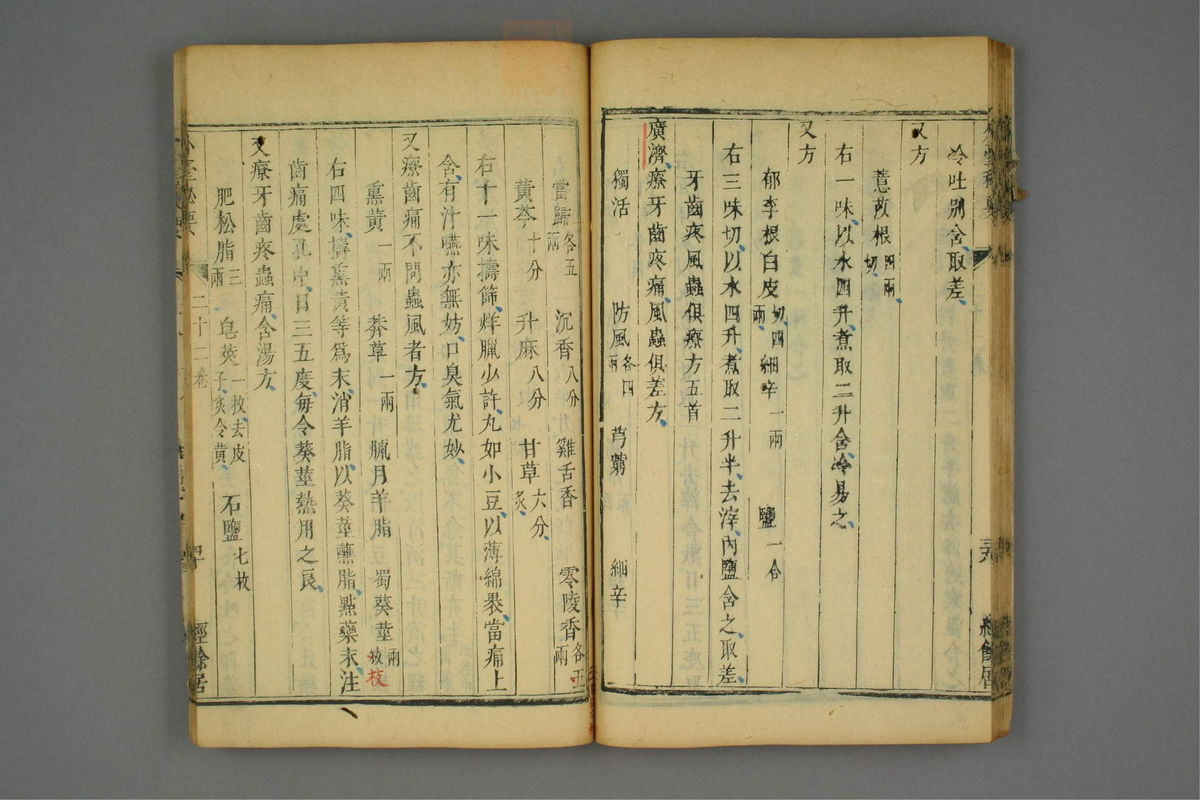 冷吐别含取差
又方
薏苡根四兩切
右一味以水四升煮取二升含冷易之
又方
郁李根白皮切四兩 細辛一兩 鹽一合
右三味切以水四升煮取二升半去滓內鹽含之取差
牙齒疼風蟲俱療方五首
廣濟療牙齒疼痛風蟲俱差方
獨活 防風各四兩 芎藭 細辛
當歸各五兩 沉香八分 雞舌香 零陵香各五兩
黃芩十分 升麻八分 甘草六分炙
右十一味擣篩烊臘少許丸如小豆以薄綿裹當痛上
含有汁嚥亦無妨口臭氣尤妙
又療齒痛不問蟲風者方
熏黃一兩 莽草一兩 臘月羊脂 蜀葵莖兩枚 枝
右四味擣熏黃等爲末消羊脂以葵莖蘸脂點藥末注
齒痛處孔中日三五度每令葵莖熱用之良
又療牙齒疼蟲痛含湯方
肥松脂三兩 皂莢一枚去皮子炙令黃 石鹽七枚
外臺秘要
二十二卷
經餘居